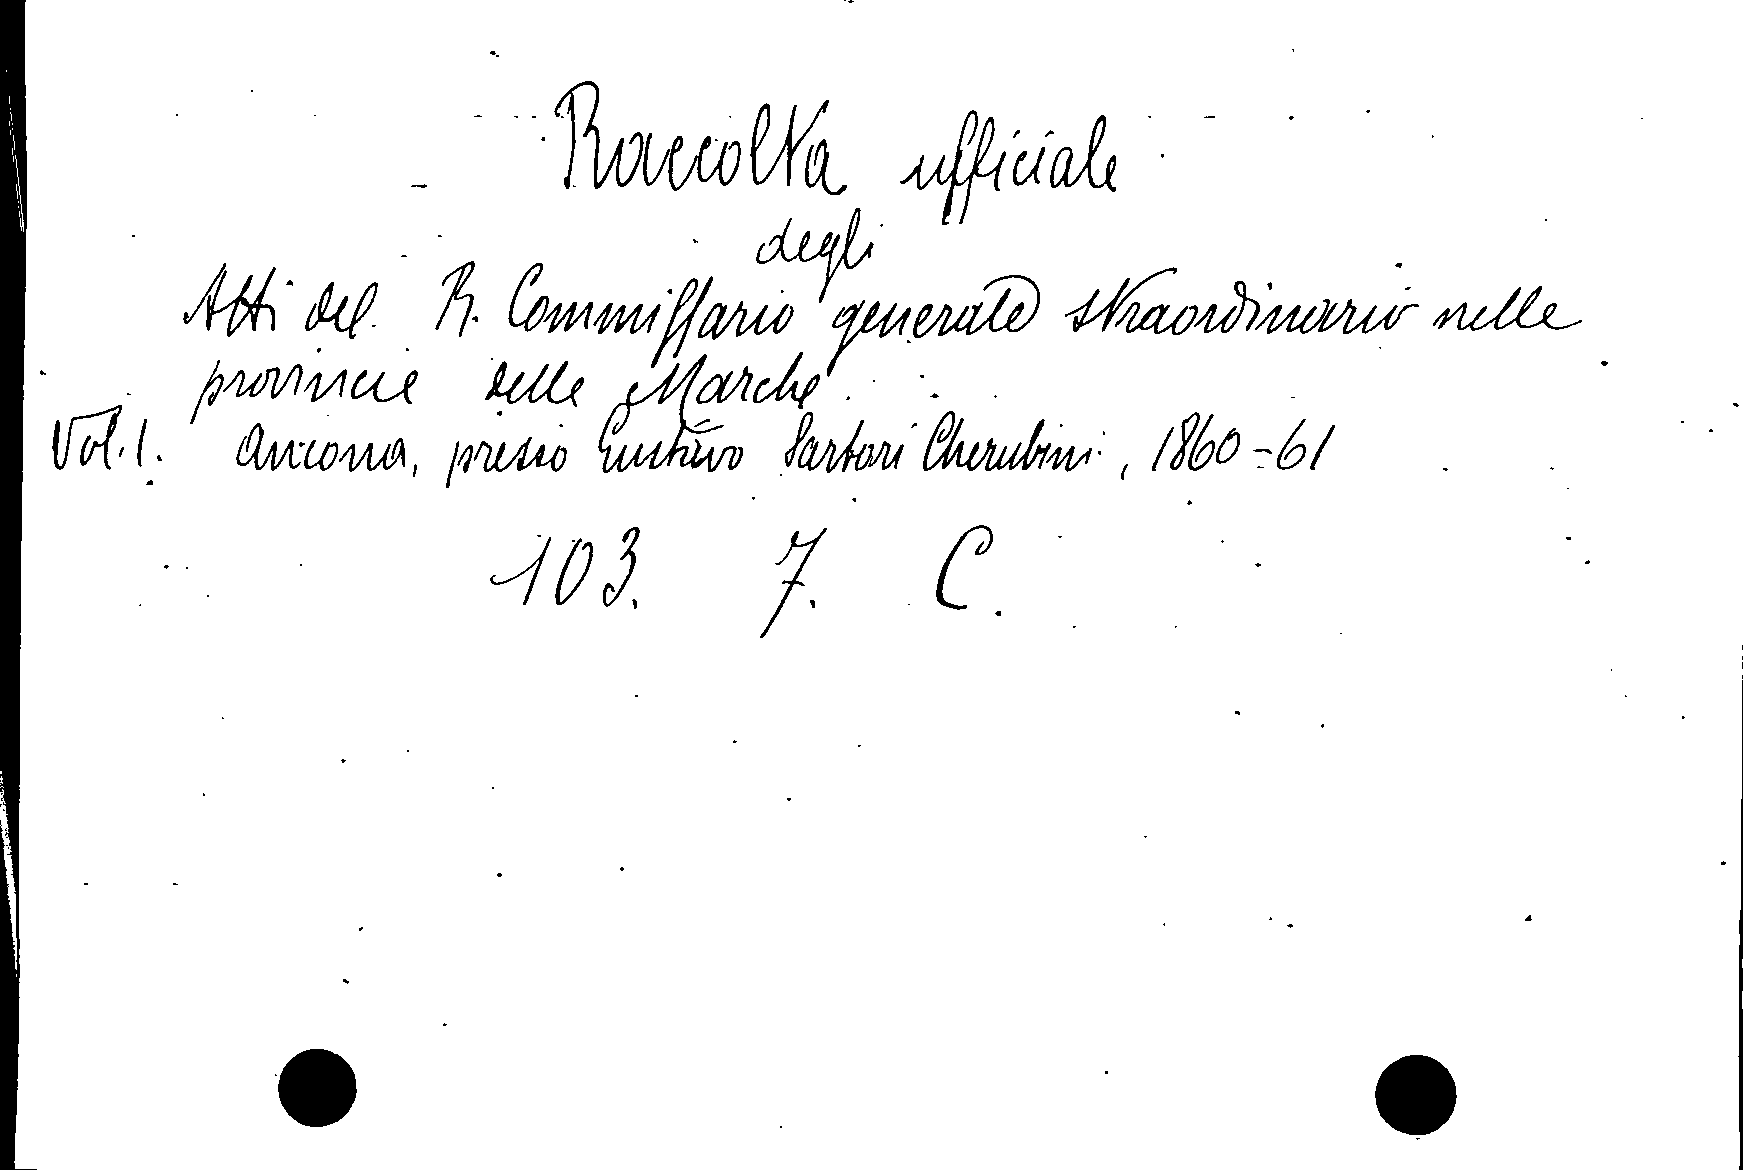 Raccolta ufficiale
degli
Atti del R. Commissario generale straordinario nelle
provincie delle Marche.
Vol. 1. Ancona, presso Gustavo Sartori Cherubini, 1860-61
103. 7. C.